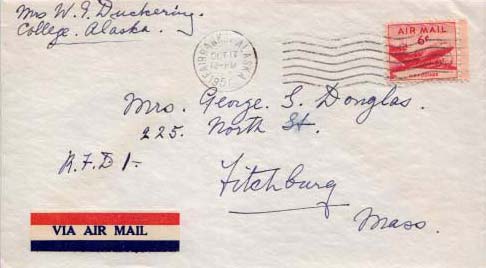 Mrs W. E. Duckering.
College. Alaska.
FAIRBANKS ALASKA
OCT 17
195
AIR MAIL
6¢
Mrs. George. S. Donglas.
225. North St.
R.F.D 1-
Fitchburg
Mass.
VIA AIR MAIL